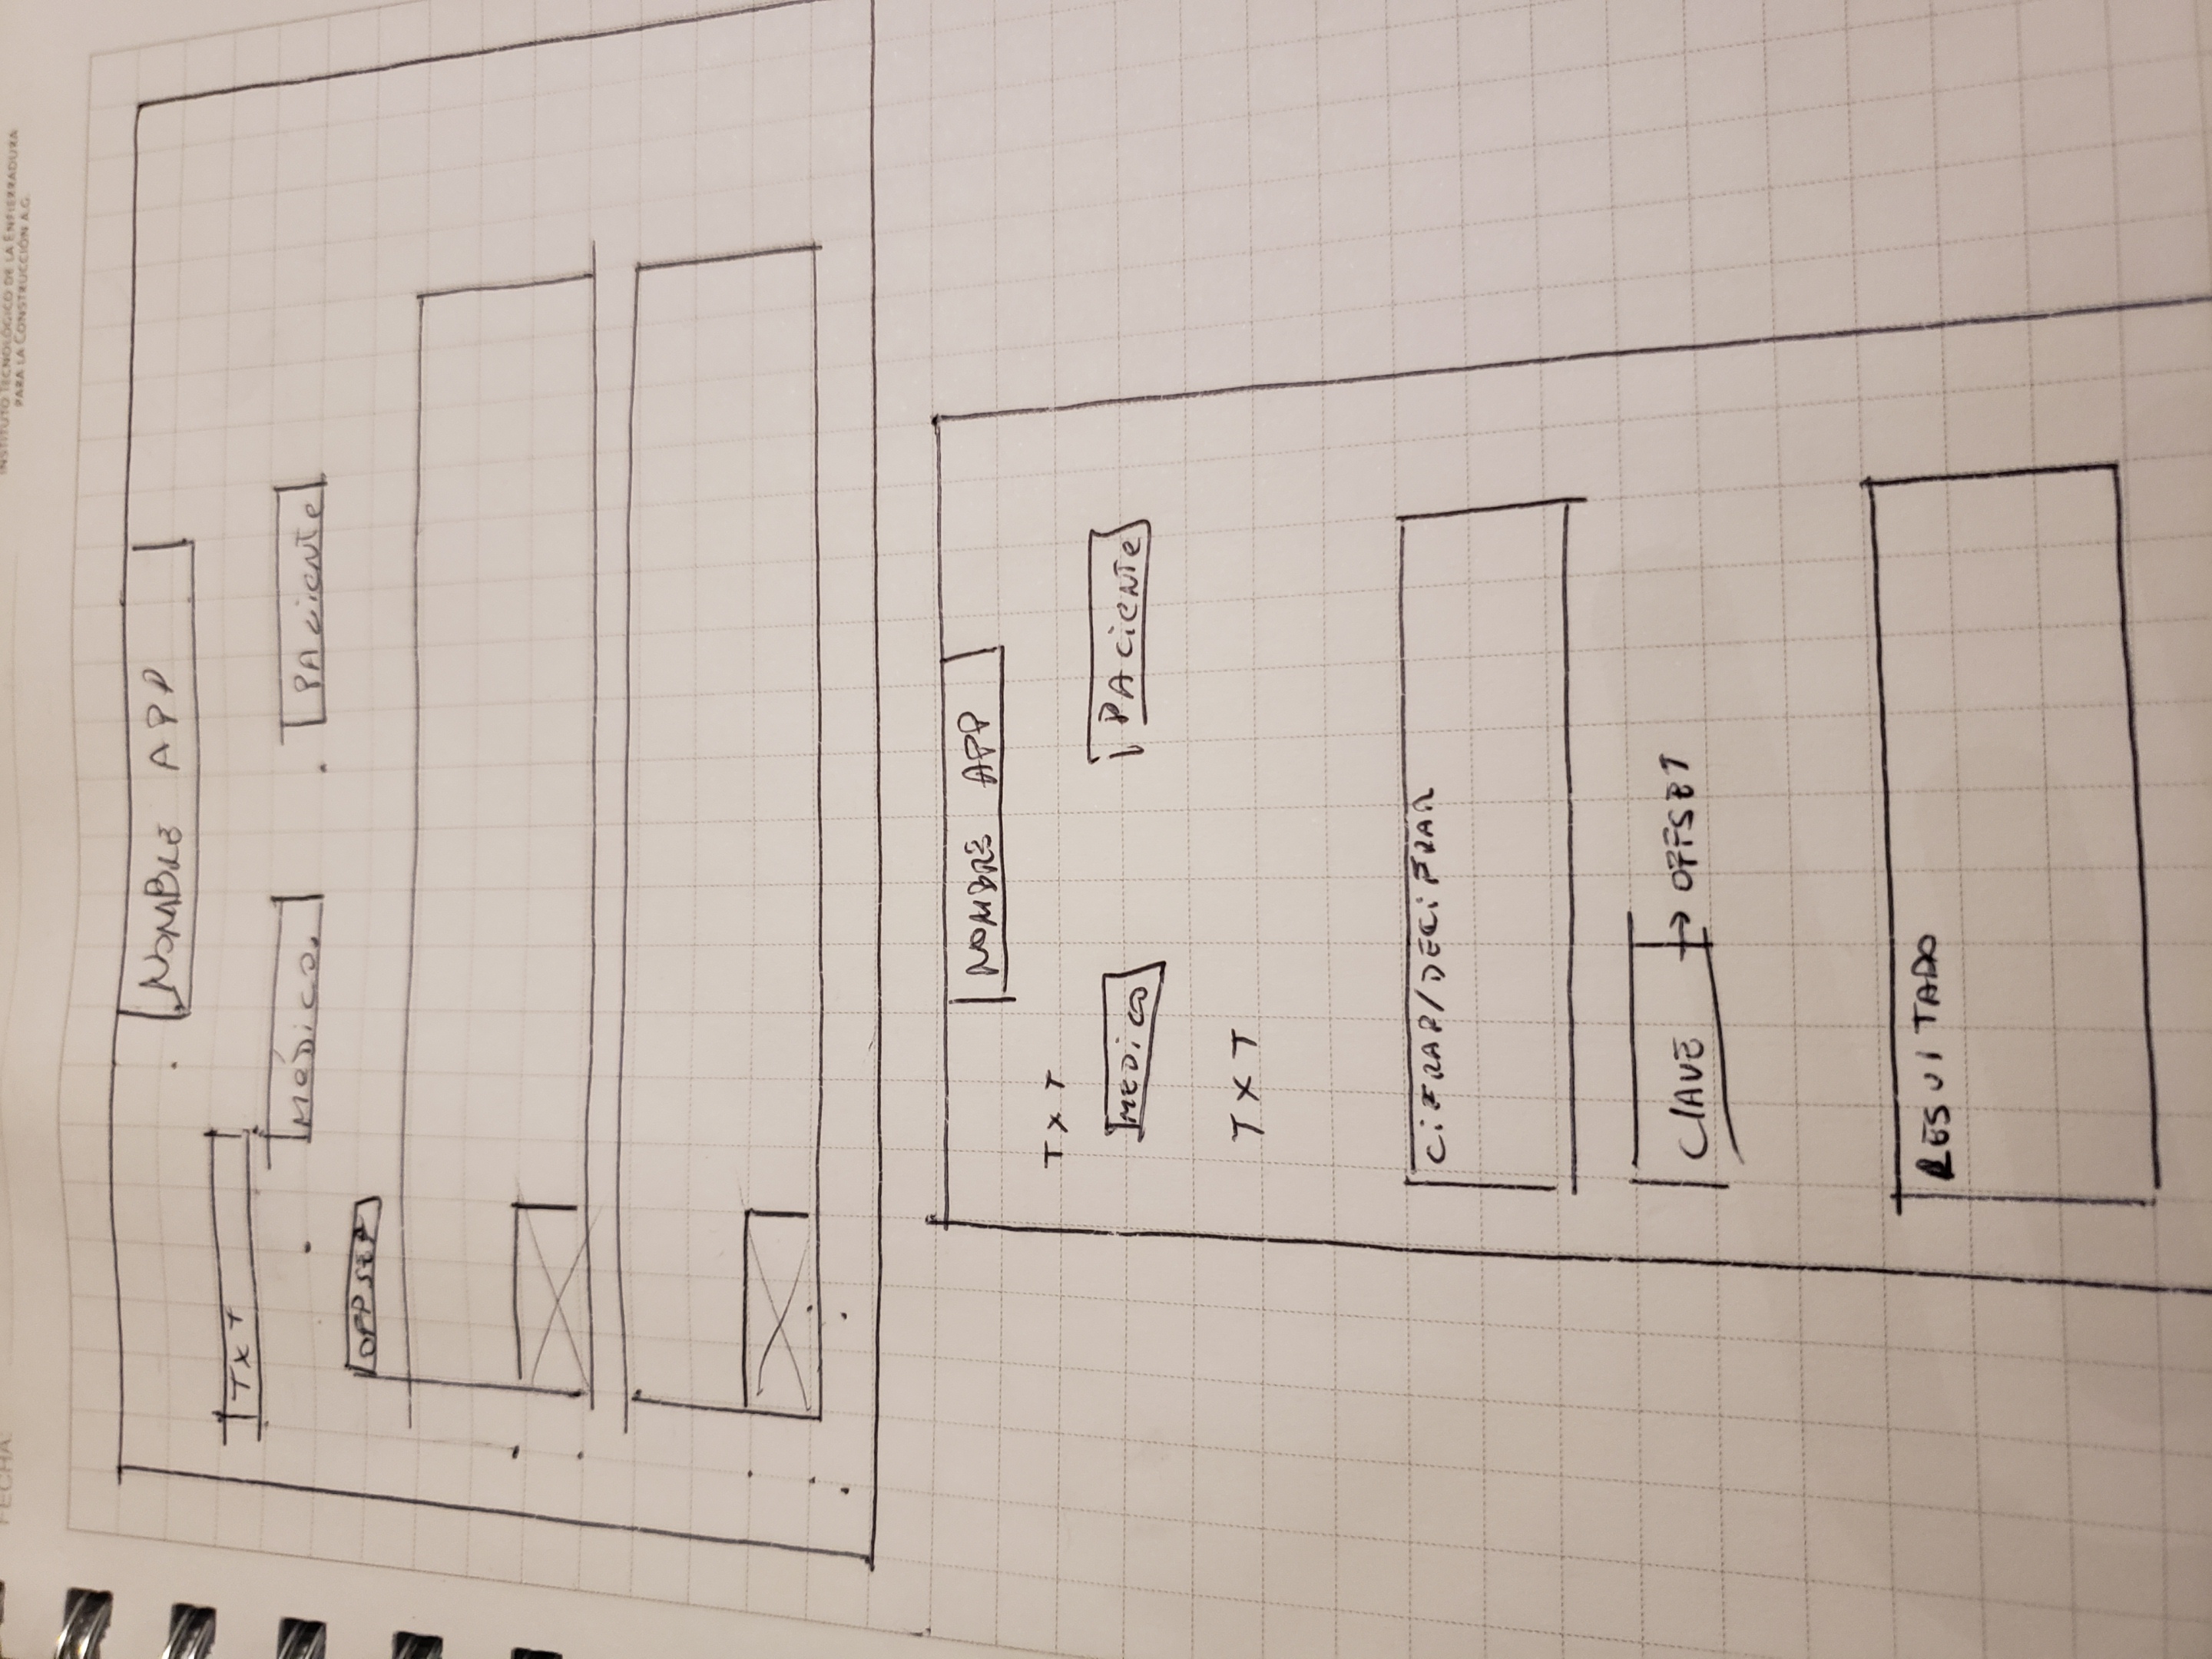 FECHA:
INSTITUTO TECNOLÓGICO DE LA ENFIERRADURA
PARA LA CONSTRUCCIÓN A.G.
NOMBRE APP
TXT
MÉDICO.
PACIENTE
OFFSET
NOMBRE APP
TXT
MEDICO
PACIENTE
TXT
CIFRAR/DECIFRAR
CLAVE → OFFSET
RESULTADO